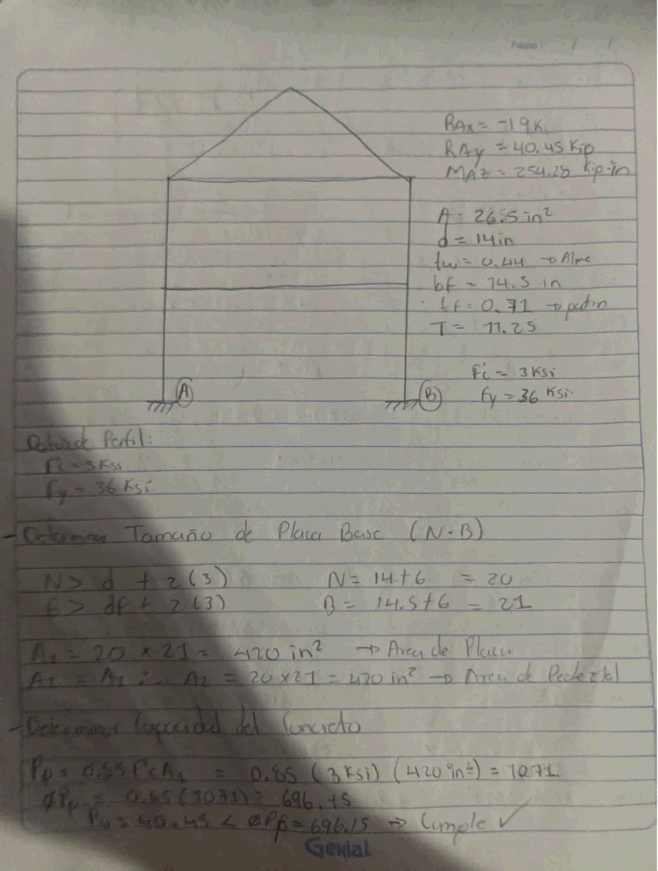 Fecha: / /
RAx = -19K
RAy = 40.45 Kip
MAz = 254.28 Kip-in
A = 26.5 in²
d = 14in
tw = 0.44 → Alma
bf = 14.5 in
tf = 0.71 → patin
T = 11.25
F'c = 3 Ksi
Fy = 36 Ksi
A
B
Datos de Perfil:
F'c = 3 Ksi
Fy = 36 Ksi
- Determinar Tamaño de Placa Base (N·B)
N > d + 2(3) N = 14+6 = 20
B > df + 2(3) B = 14.5+6 = 21
A1 = 20 x 21 = 420 in² → Area de Placa
A2 = A1 ∴ A2 = 20x21 = 420 in² → Area de Pedestal
- Determinar Capacidad del Concreto
Pp = 0.85 F'c A1 = 0.85 (3 Ksi) (420 in²) = 1071
ØPp = 0.65 (1071) = 696.15
Pu = 40.45 < ØPp = 696.15 ⇒ Cumple ✓
Genial